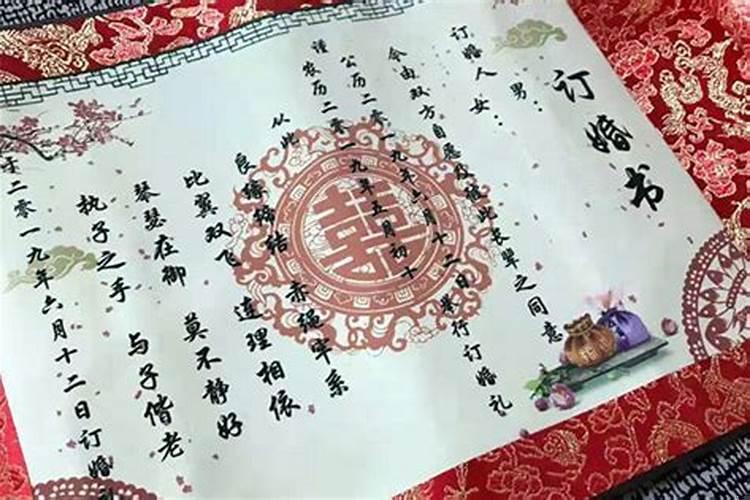 订婚书
订婚人 男：
女：
今由双方自愿及征此长辈之同意
谨
公历二零一九年六月十二日举行订婚礼
农历二零一九年五月初十
从此
良缘缔结 赤绳牢系
比翼双飞 连理相依
琴瑟在御 莫不静好
执子之手 与子偕老
于二零一九年六月十二日订婚